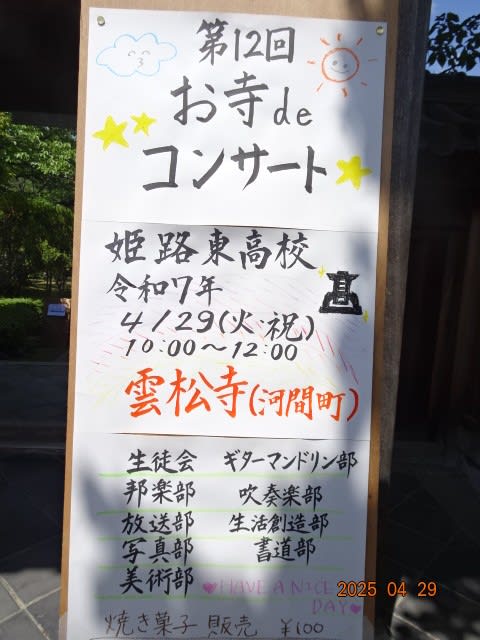 第12回
お寺de
コンサート
姫路東高校
令和7年
4/29(火・祝)
10:00～12:00
雲松寺(河間町)
生徒会 ギターマンドリン部
邦楽部 吹奏楽部
放送部 生活創造部
写真部 書道部
美術部 ♥HAVE A NICE
DAY♥
焼き菓子 販売 ¥100
2025 04 29